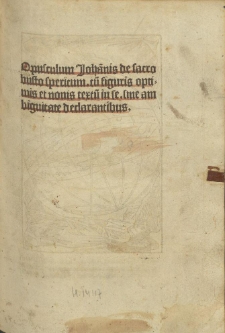 Opusculum Johānis de sacro
busto spericum. cū figuris opti⸗
mis et nouis textū in se, siue am
biguitate declarantibus.